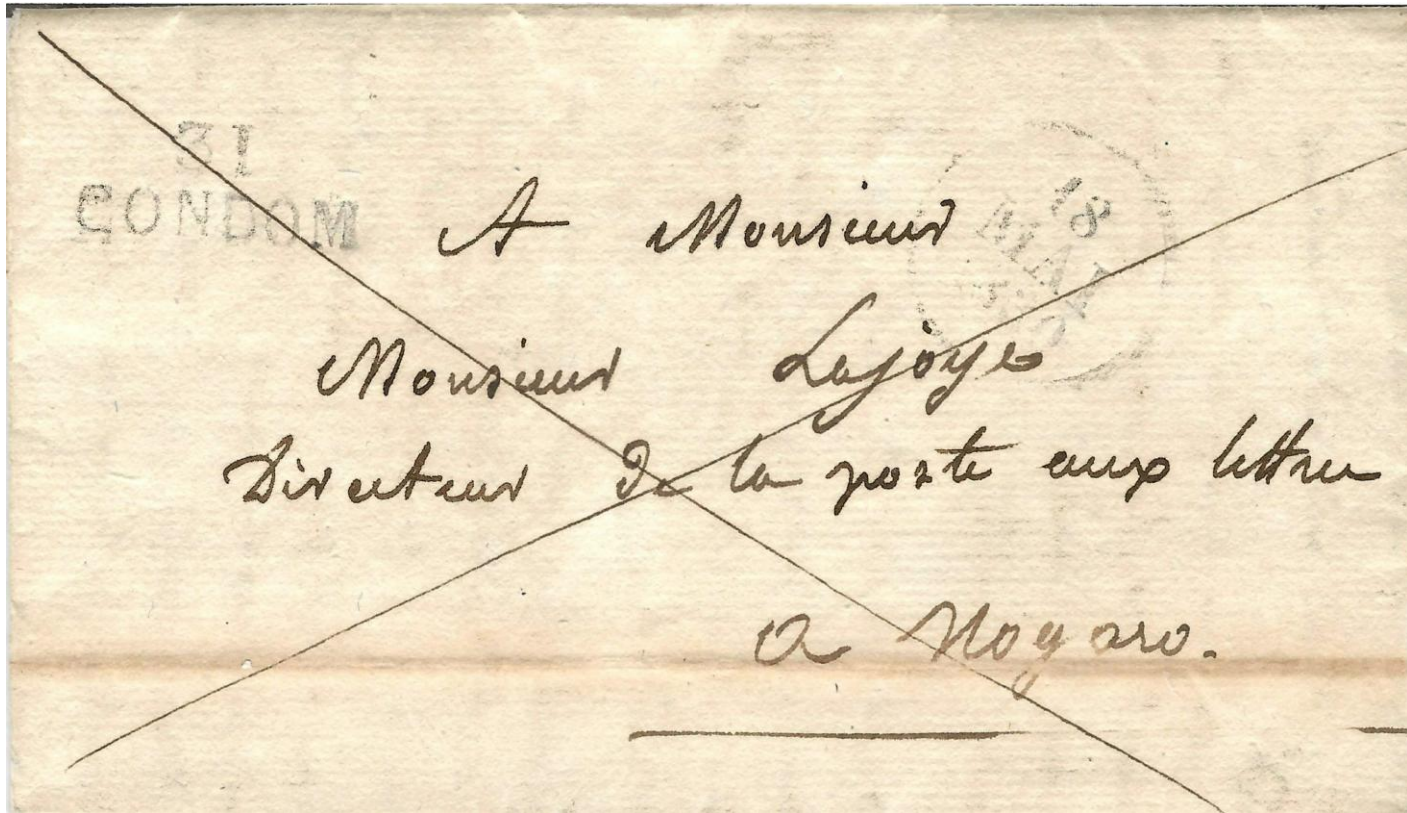 31
CONDOM
18
MAI
A Monsieur
Monsieur Lajoye
Directeur De la poste aux lettres
a Nogaro.